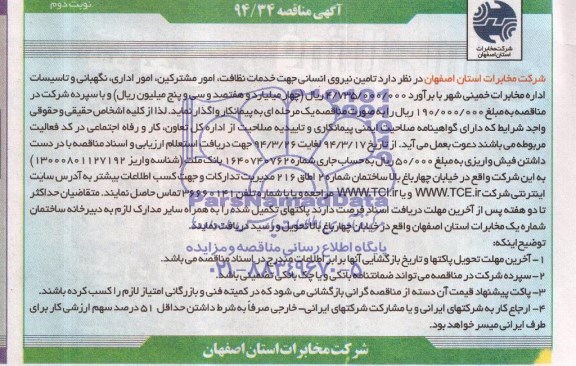 نوبت دوم
آگهی مناقصه ۹۴/۳۴
شرکت مخابرات
استان اصفهان
شرکت مخابرات استان اصفهان در نظر دارد تامین نیروی انسانی جهت خدمات نظافت، امور مشترکین، امور اداری، نگهبانی و تاسیسات
اداره مخابرات خمینی شهر با برآورد ۴/۷۳۵/۰۰۰/۰۰۰ ریال (چهار میلیارد و هفتصد و سی و پنج میلیون ریال) و با سپرده شرکت در
مناقصه به مبلغ ۱۹۰/۰۰۰/۰۰۰ ریال را به صورت مناقصه یک مرحله ای به پیمانکار واگذار نماید. لذا از کلیه اشخاص حقیقی و حقوقی
واجد شرایط که دارای گواهینامه صلاحیت ایمنی پیمانکاری و تاییدیه صلاحیت از اداره کل تعاون، کار و رفاه اجتماعی در کد فعالیت
مربوطه می باشند دعوت بعمل می آید. از تاریخ ۹۴/۳/۱۷ لغایت ۹۴/۳/۱۶ جهت دریافت استعلام ارزیابی و اسناد مناقصه با در دست
داشتن فیش واریزی به مبلغ ۵۰/۰۰۰ ریال به حساب جاری شماره ۱۶۴۰۷۴۰۷۶۲ بانک ملت (شناسه واریز ۱۳۰۰۰۸۰۱۱۲۷۱۹۲)
به این شرکت واقع در خیابان چهارباغ بالا ساختمان شماره ۲ اطاق ۲۱۶ مدیریت تدارکات و جهت کسب اطلاعات بیشتر به آدرس سایت
اینترنتی شرکت WWW.TCE.ir و یا WWW.TCI.ir مراجعه و یا با شماره تلفن ۳۶۶۶۰۱۴۱ تماس حاصل نمایند. متقاضیان حداکثر
تا دو هفته پس از آخرین مهلت دریافت اسناد فرصت دارند پاکتهای تکمیل شده را به همراه سایر مدارک لازم به دبیرخانه ساختمان
شماره یک مخابرات استان اصفهان واقع در خیابان چهارباغ بالا تحویل و رسید دریافت نمایند.
توضیح اینکه:
۱- آخرین مهلت تحویل پاکتها و تاریخ بازگشایی آنها برابر اطلاعات مندرج در اسناد مناقصه می باشد.
۲- سپرده شرکت در مناقصه می تواند ضمانتنامه بانکی و یا چک بانکی تضمینی باشد.
۳- پاکت پیشنهاد قیمت آن دسته از مناقصه گران بازگشایی می شود که در کمیته فنی و بازرگانی امتیاز لازم را کسب کرده باشند.
۴- ارجاع کار به شرکتهای ایرانی و یا مشارکت شرکتهای ایرانی-خارجی صرفاً به شرط داشتن حداقل ۵۱ درصد سهم ارزشی کار برای
طرف ایرانی میسر خواهد بود.
ParsNamadData
پایگاه اطلاع رسانی مناقصه و مزایده
۰۲۱-۸۸۳۴۹۶۷۰-۵
شرکت مخابرات استان اصفهان